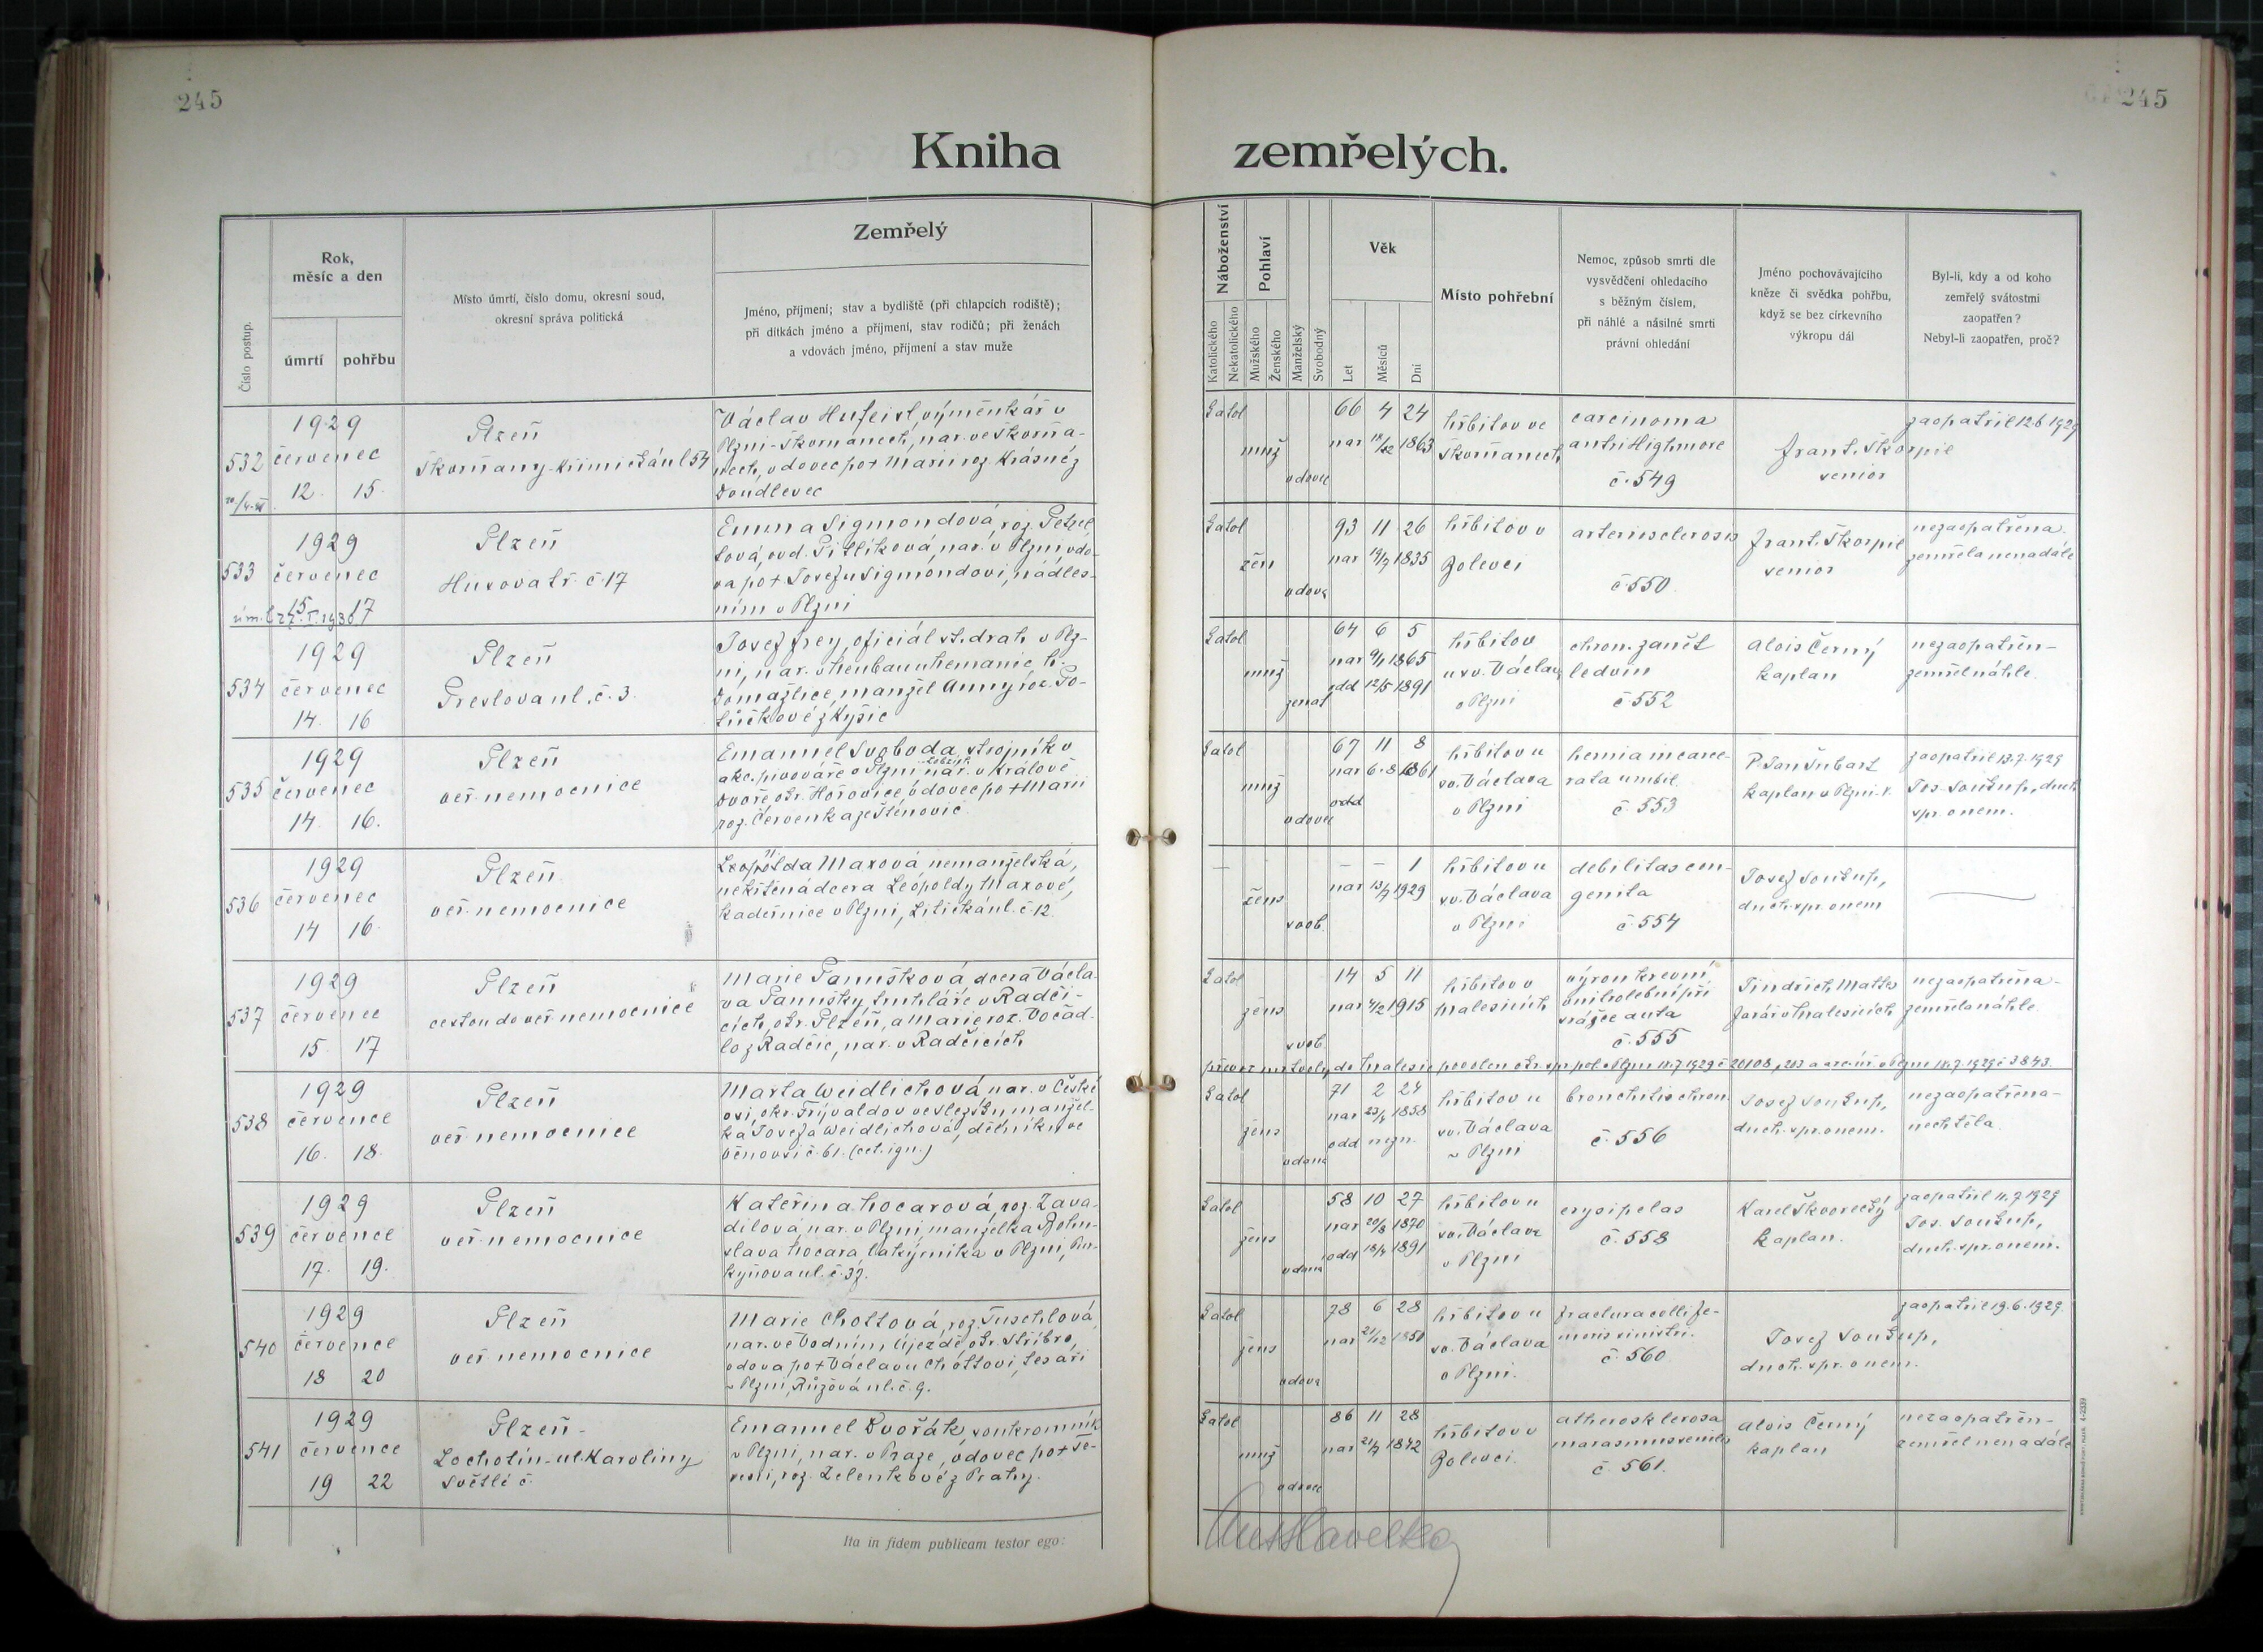 245
245
Kniha zemřelých.
Číslo postup.
Rok,
měsíc a den
úmrtí
pohřbu
Místo úmrtí, číslo domu, okresní soud,
okresní správa politická
Zemřelý
Jméno, příjmení; stav a bydliště (při chlapcích rodiště);
při dítkách jméno a příjmení, stav rodičů; při ženách
a vdovách jméno, příjmení a stav muže
Náboženství
Katolického
Nekatolického
Pohlaví
Mužského
Ženského
Manželský
Svobodný
Věk
Let
Měsíců
Dní
Místo pohřební
Nemoc, způsob smrti dle
vysvědčení ohledacího
s běžným číslem,
při náhlé a násilné smrti
právní ohledání
Jméno pochovávajícího
kněze či svědka pohřbu,
když se bez církevního
výkropu dál
Byl-li, kdy a od koho
zemřelý svátostmi
zaopatřen?
Nebyl-li zaopatřen, proč?
532
1929
červenec
12. 15.
Plzeň
Škvrňany-Křimická ul 54
Václav Hufeisl, výměnkář v
Plzni-Škvrňanech, nar. ve Škvrňa-
nech, vdovec po + Marii roz. Krásné z
Doudlevec
katol
muž
vdovec
66 4 24
nar 18/2 1863
hřbitov ve
Škvrňanech
carcinoma
antri Highmore
č. 549
Frant. Škorpil
senior
zaopatřil 12.6 1929
533
1929
červenec
15 17
Plzeň
Husova tř. č. 17
Emma Sigmondová, roz.
vdo-
va po + Josefu Sigmondovi, nadles-
ním v Plzni
katol
žen
vdova
93 11 26
nar 19/7 1835
hřbitov v
Bolevci
arteriosclerosis
č. 550
Frant. Škorpil
senior
nezaopatřena
zemřela nenadále
534
1929
červenec
14. 16
Plzeň
Preslova ul. č. 3.
Josef Frey, oficiál st. drah v Plz-
ni, nar. v
Domažlice, manžel Anny roz. Po-
lívkové z Kyšic
katol
muž
ženat
64 6 5
nar 9/1 1865
odd 12/5 1891
hřbitov
u sv. Václava
v Plzni
chron. zánět
ledvin
č. 552
Alois Černý
kaplan
nezaopatřen-
zemřel náhle.
535
1929
červenec
14. 16.
Plzeň
veř. nemocnice
Emanuel Svoboda, strojník v
akc. pivováře v Plzni nar. v Králově
Dvoře, okr. Hořovice, vdovec po + Marii
roz. Červenka ze Štěnovic
katol
muž
vdovec
67 11 8
nar 6.8. 1861
odd
hřbitov u
sv. Václava
v Plzni
hernia incarce-
rata umbil.
č. 553
P. Jan Šubart
kaplan v Plzni
zaopatřil 13.7.1929
Jos. Soukup, duch.
spr. v nem.
536
1929
červenec
14 16
Plzeň
veř. nemocnice
Leopolda Maxová nemanželská,
nekřtěná dcera Leopoldy Maxové,
kadeřnice v Plzni, Litická ul. č. 12.
—
žens
svob.
— — 1
nar 13/7 1929
hřbitov u
sv. Václava
v Plzni
debilitas con-
genita
č. 554
Josef Soukup,
duch. spr. v nem
537
1929
červenec
15. 17
Plzeň
cestou do veř. nemocnice
Marie Panušková, dcera Václa-
va Panušky, truhláře v Radči-
cích, okr. Plzeň, a Marie roz. Vočad-
lo z Radčic, nar. v Radčicích
katol
žens
svob.
14 5 11
nar 4/2 1915
hřbitov v
Malesicích
výron krevní
vnitrolební při
srážce auta
č. 555
Jindřich Mattas
farář v Malesicích
nezaopatřena-
zemřela náhle
538
1929
července
16. 18.
Plzeň
veř. nemocnice
Marta Weidlichová nar. v České
vsi, okr. Frývaldov ve Slezsku manžel-
ka Josefa Weidlichová, dělníka ve
č. 61. (cet. ign.)
katol
žens
vdaná
71 2 24
nar 23/4 1858
odd nezn.
hřbitov u
sv. Václava
v Plzni
bronchitis chron.
č. 556
Josef Soukup,
duch. spr. v nem.
nezaopatřena-
nechtěla.
539
1929
července
17. 19.
Plzeň
veř. nemocnice
Kateřina Hocarová, roz. Zava-
dilová, nar. v Plzni, manželka Bohu-
slava Hocara, lakýrníka v Plzni, Pur-
kyňova ul. č. 37.
katol
žens
vdaná
58 10 27
nar 20/8 1870
odd 18/4 1891
hřbitov u
sv. Václava
v Plzni
erysipelas
č. 558
Karel Škvorecký
kaplan.
zaopatřil 11.7.1929
Jos. Soukup,
duch. spr. v nem.
540
1929
července
18 20
Plzeň
veř. nemocnice
Marie Chottová, roz. Tuschlová
nar. ve Vodním Újezdě, okr. Stříbro,
vdova po + Václavu Chottovi, tesaři
v Plzni, Růžová ul. č. 9.
katol
žens
vdova
78 6 28
nar 21/12 1850
hřbitov u
sv. Václava
v Plzni.
fractura colli fe-
moris sinistri.
č. 560
Josef Soukup,
duch. spr. v nem.
zaopatřil 19.6.1929
541
1929
července
19 22
Plzeň-
Lochotín-ul. Karoliny
Světlé č.
Emanuel Dvořák, soukromník
v Plzni, nar. v Praze, vdovec po + Te-
rezii, roz. Zelenkové z Prahy.
katol
muž
vdovec
86 11 28
nar 21/7 1842
hřbitov v
Bolevci.
atherosklerosa
marasmus senilis
č. 561.
Alois Černý
kaplan
nezaopatřen-
zemřel nenadále
Ita in fidem publicam testor ego: